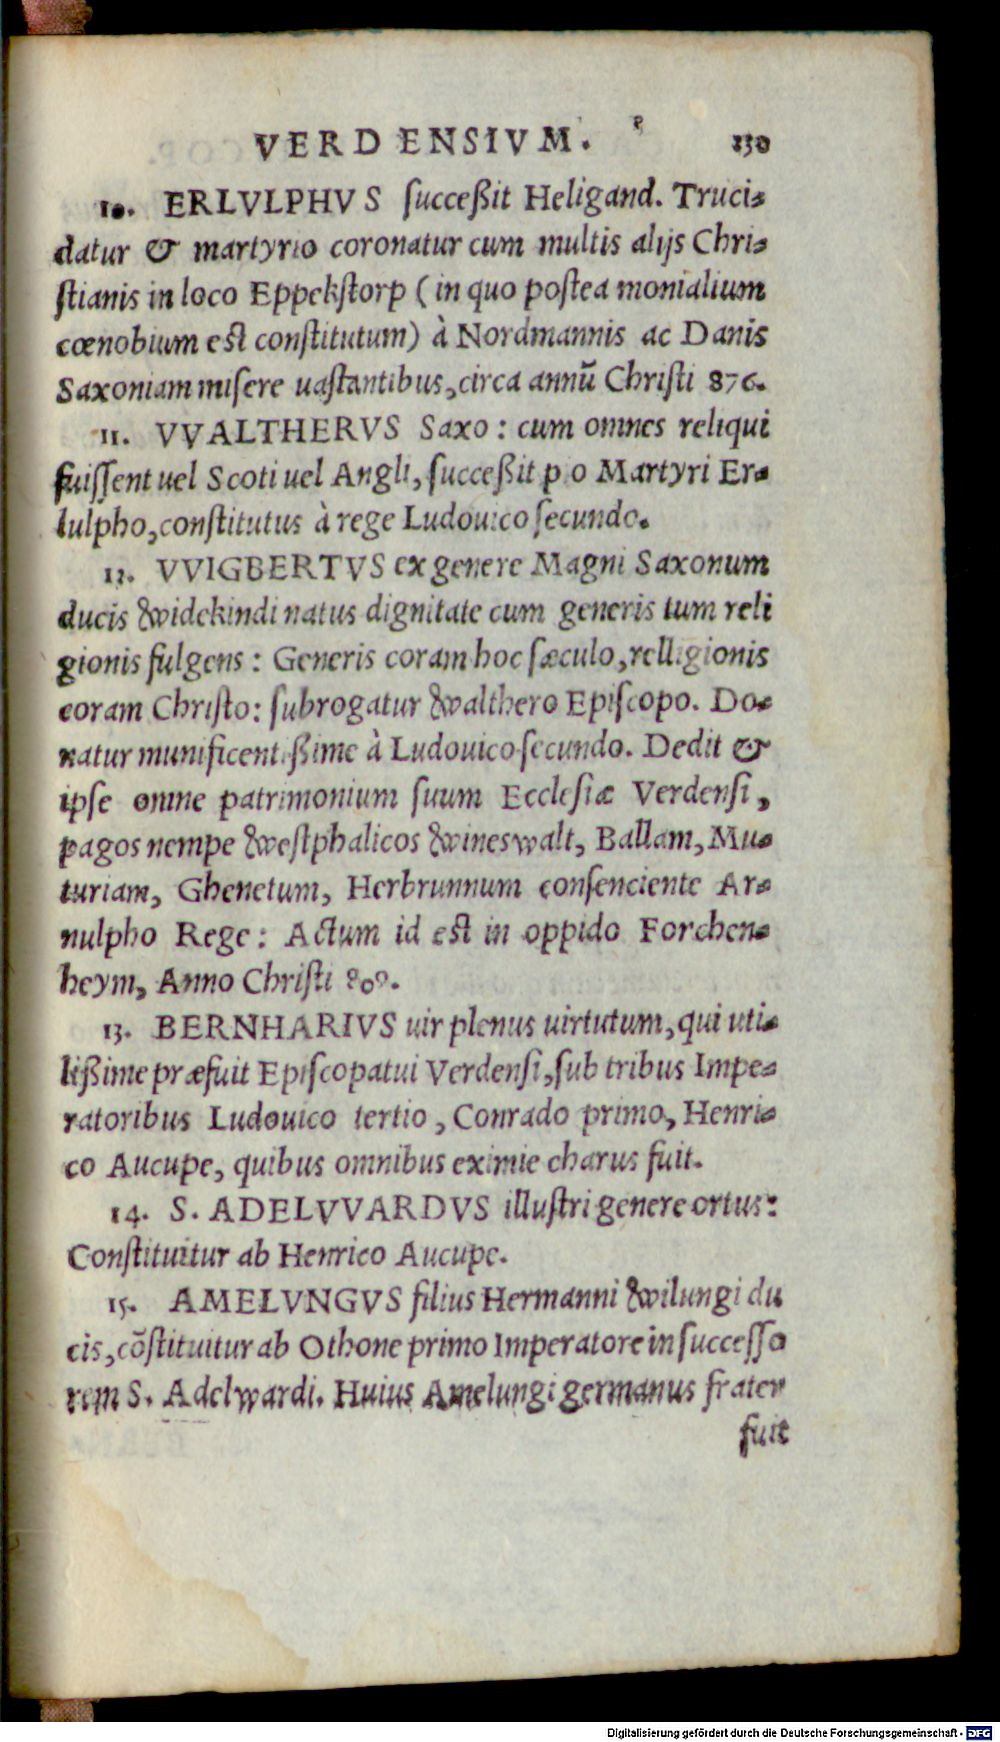 VERDENSIVM. 130
10. ERLVLPHVS succeßit Heligand. Truci-
datur & martyrio coronatur cum multis alijs Chri-
stianis in loco Eppekstorp (in quo postea monialium
cœnobium est constitutum) à Nordmannis ac Danis
Saxoniam misere uastantibus, circa annũ Christi 876.
11. VVALTHERVS Saxo: cum omnes reliqui
fuissent uel Scoti uel Angli, succeßit p o Martyri Er-
lulpho, constitutus à rege Ludouico secundo.
12. VVIGBERTVS ex genere Magni Saxonum
ducis widekindi natus dignitate cum generis tum reli
gionis fulgens: Generis coram hoc sæculo, relligionis
coram Christo: subrogatur walthero Episcopo. Do-
natur munificentißime à Ludouico secundo. Dedit &
ipse omne patrimonium suum Ecclesiæ Verdensi,
pagos nempe westphalicos wineswalt, Ballam, Mu-
turiam, Ghenetum, Herbrunnum consenciente Ar-
nulpho Rege: Actum id est in oppido Forchen-
heym, Anno Christi
13. BERNHARIVS uir plenus uirtutum, qui uti-
lißime præfuit Episcopatui Verdensi, sub tribus Impe-
ratoribus Ludouico tertio, Conrado primo, Henri-
co Aucupe, quibus omnibus eximie charus fuit.
14. S. ADELVVARDVS illustri genere ortus:
Constituitur ab Henrico Aucupe.
15. AMELVNGVS filius Hermanni wilungi du
cis, cõstituitur ab Othone primo Imperatore in successo
rem S. Adelwardi. Huius Amelungi germanus frater
fuit
Digitalisierung gefördert durch die Deutsche Forschungsgemeinschaft - DFG